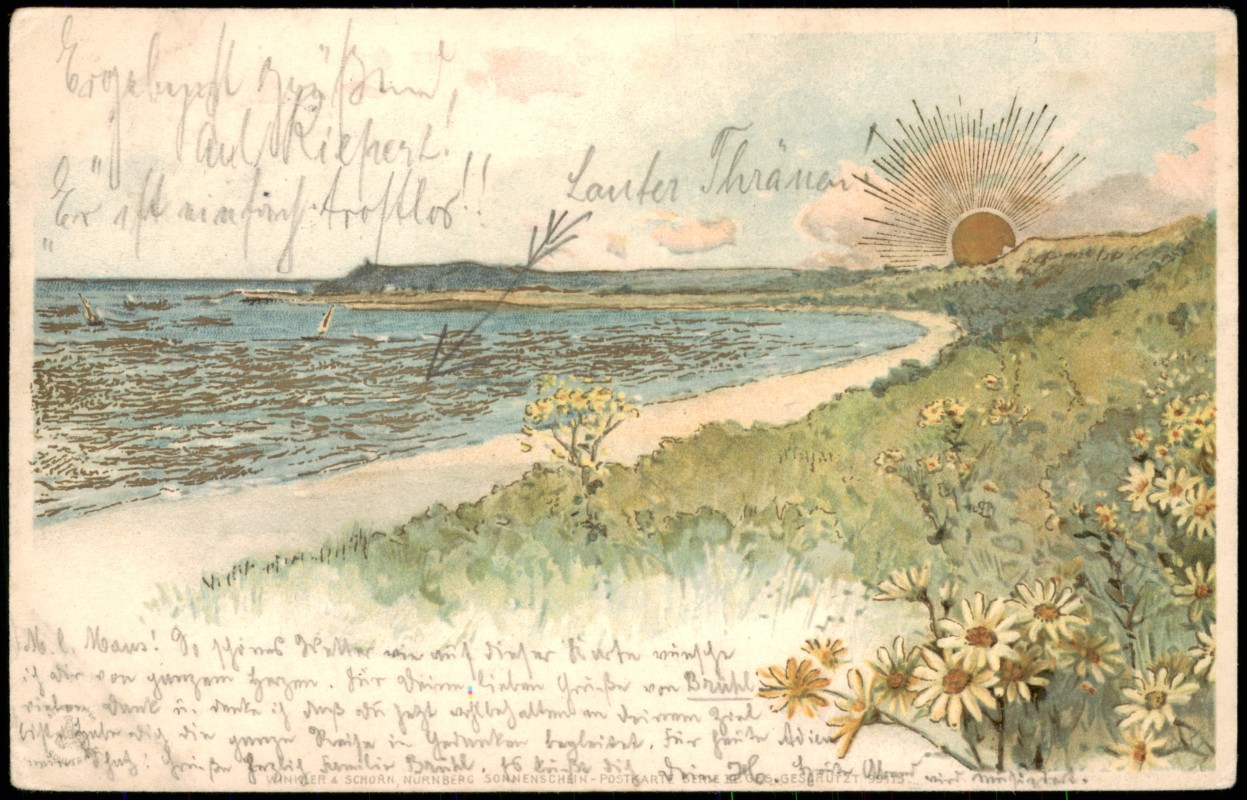 Ergebenst grüßend,
Paul Kiepert!
"Er ist einfach trostlos"!!
Lauter Thränen!
M. l. Maus! So schönes Wetter wie auf dieser Karte wünsche
ich dir von ganzem Herzen. Für Deine lieben Grüße von Brühl
vielen Dank u. denke ich daß du jetzt wohlbehalten an Deinem Ziel
bist. Habe dich die ganze Reise in Gedanken begleitet. Für heute Adieu
mein Schatz! Grüße herzlich Familie Brühl. Es küßt dich Dein
wird
WINKLER & SCHORN, NÜRNBERG SONNENSCHEIN-POSTKARTE SERIE GES. GESCHÜTZT